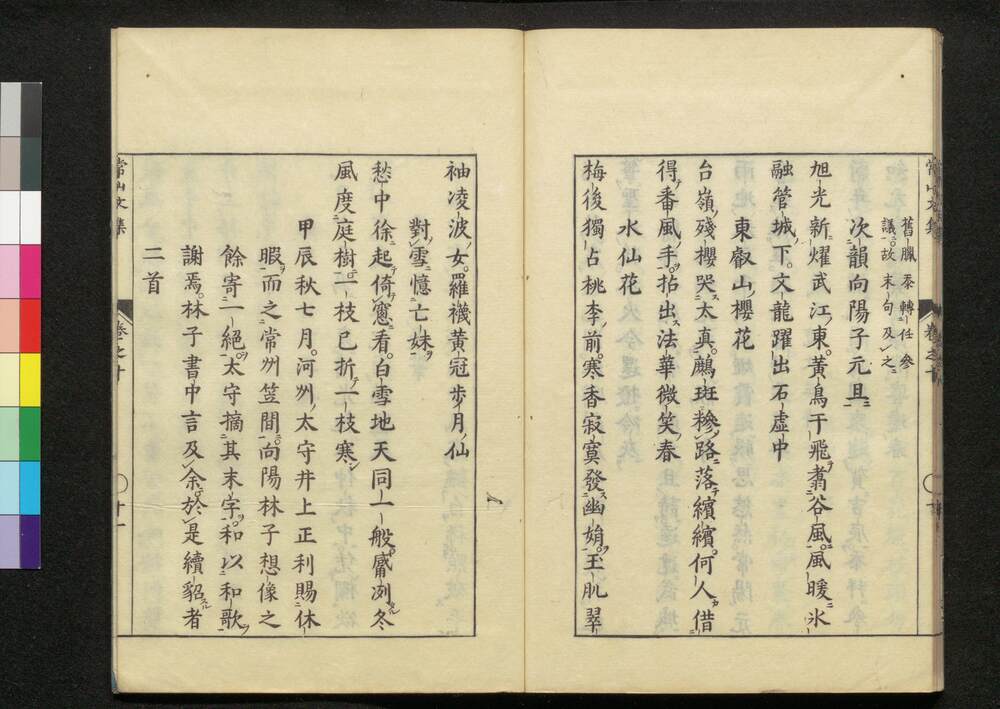 舊臘忝轉任參
議故末句及之
次韻向陽子元旦
旭光新燿武江東黃鳥干飛翥谷風風暖氷
融管城下文龍躍出石虛中
東叡山櫻花
台嶺殘櫻哭太真麝斑糝路落繽繽何人借
得番風手拈出法華微笑春
水仙花
梅後獨占桃李前寒香寂寞發幽娟玉肌翠
袖凌波女羅襪黃冠步月仙
對雪憶亡妹
愁中徐起倚窓看白雪地天同一般觱冽冬
風度庭樹一枝已折一枝寒
甲辰秋七月河州太守井上正利賜休
暇而之常州笠間向陽林子想像之
餘寄一絕太守摘其末字和以和歌
謝焉林子書中言及余於是續貂者
二首
常山文集
卷之十
十一